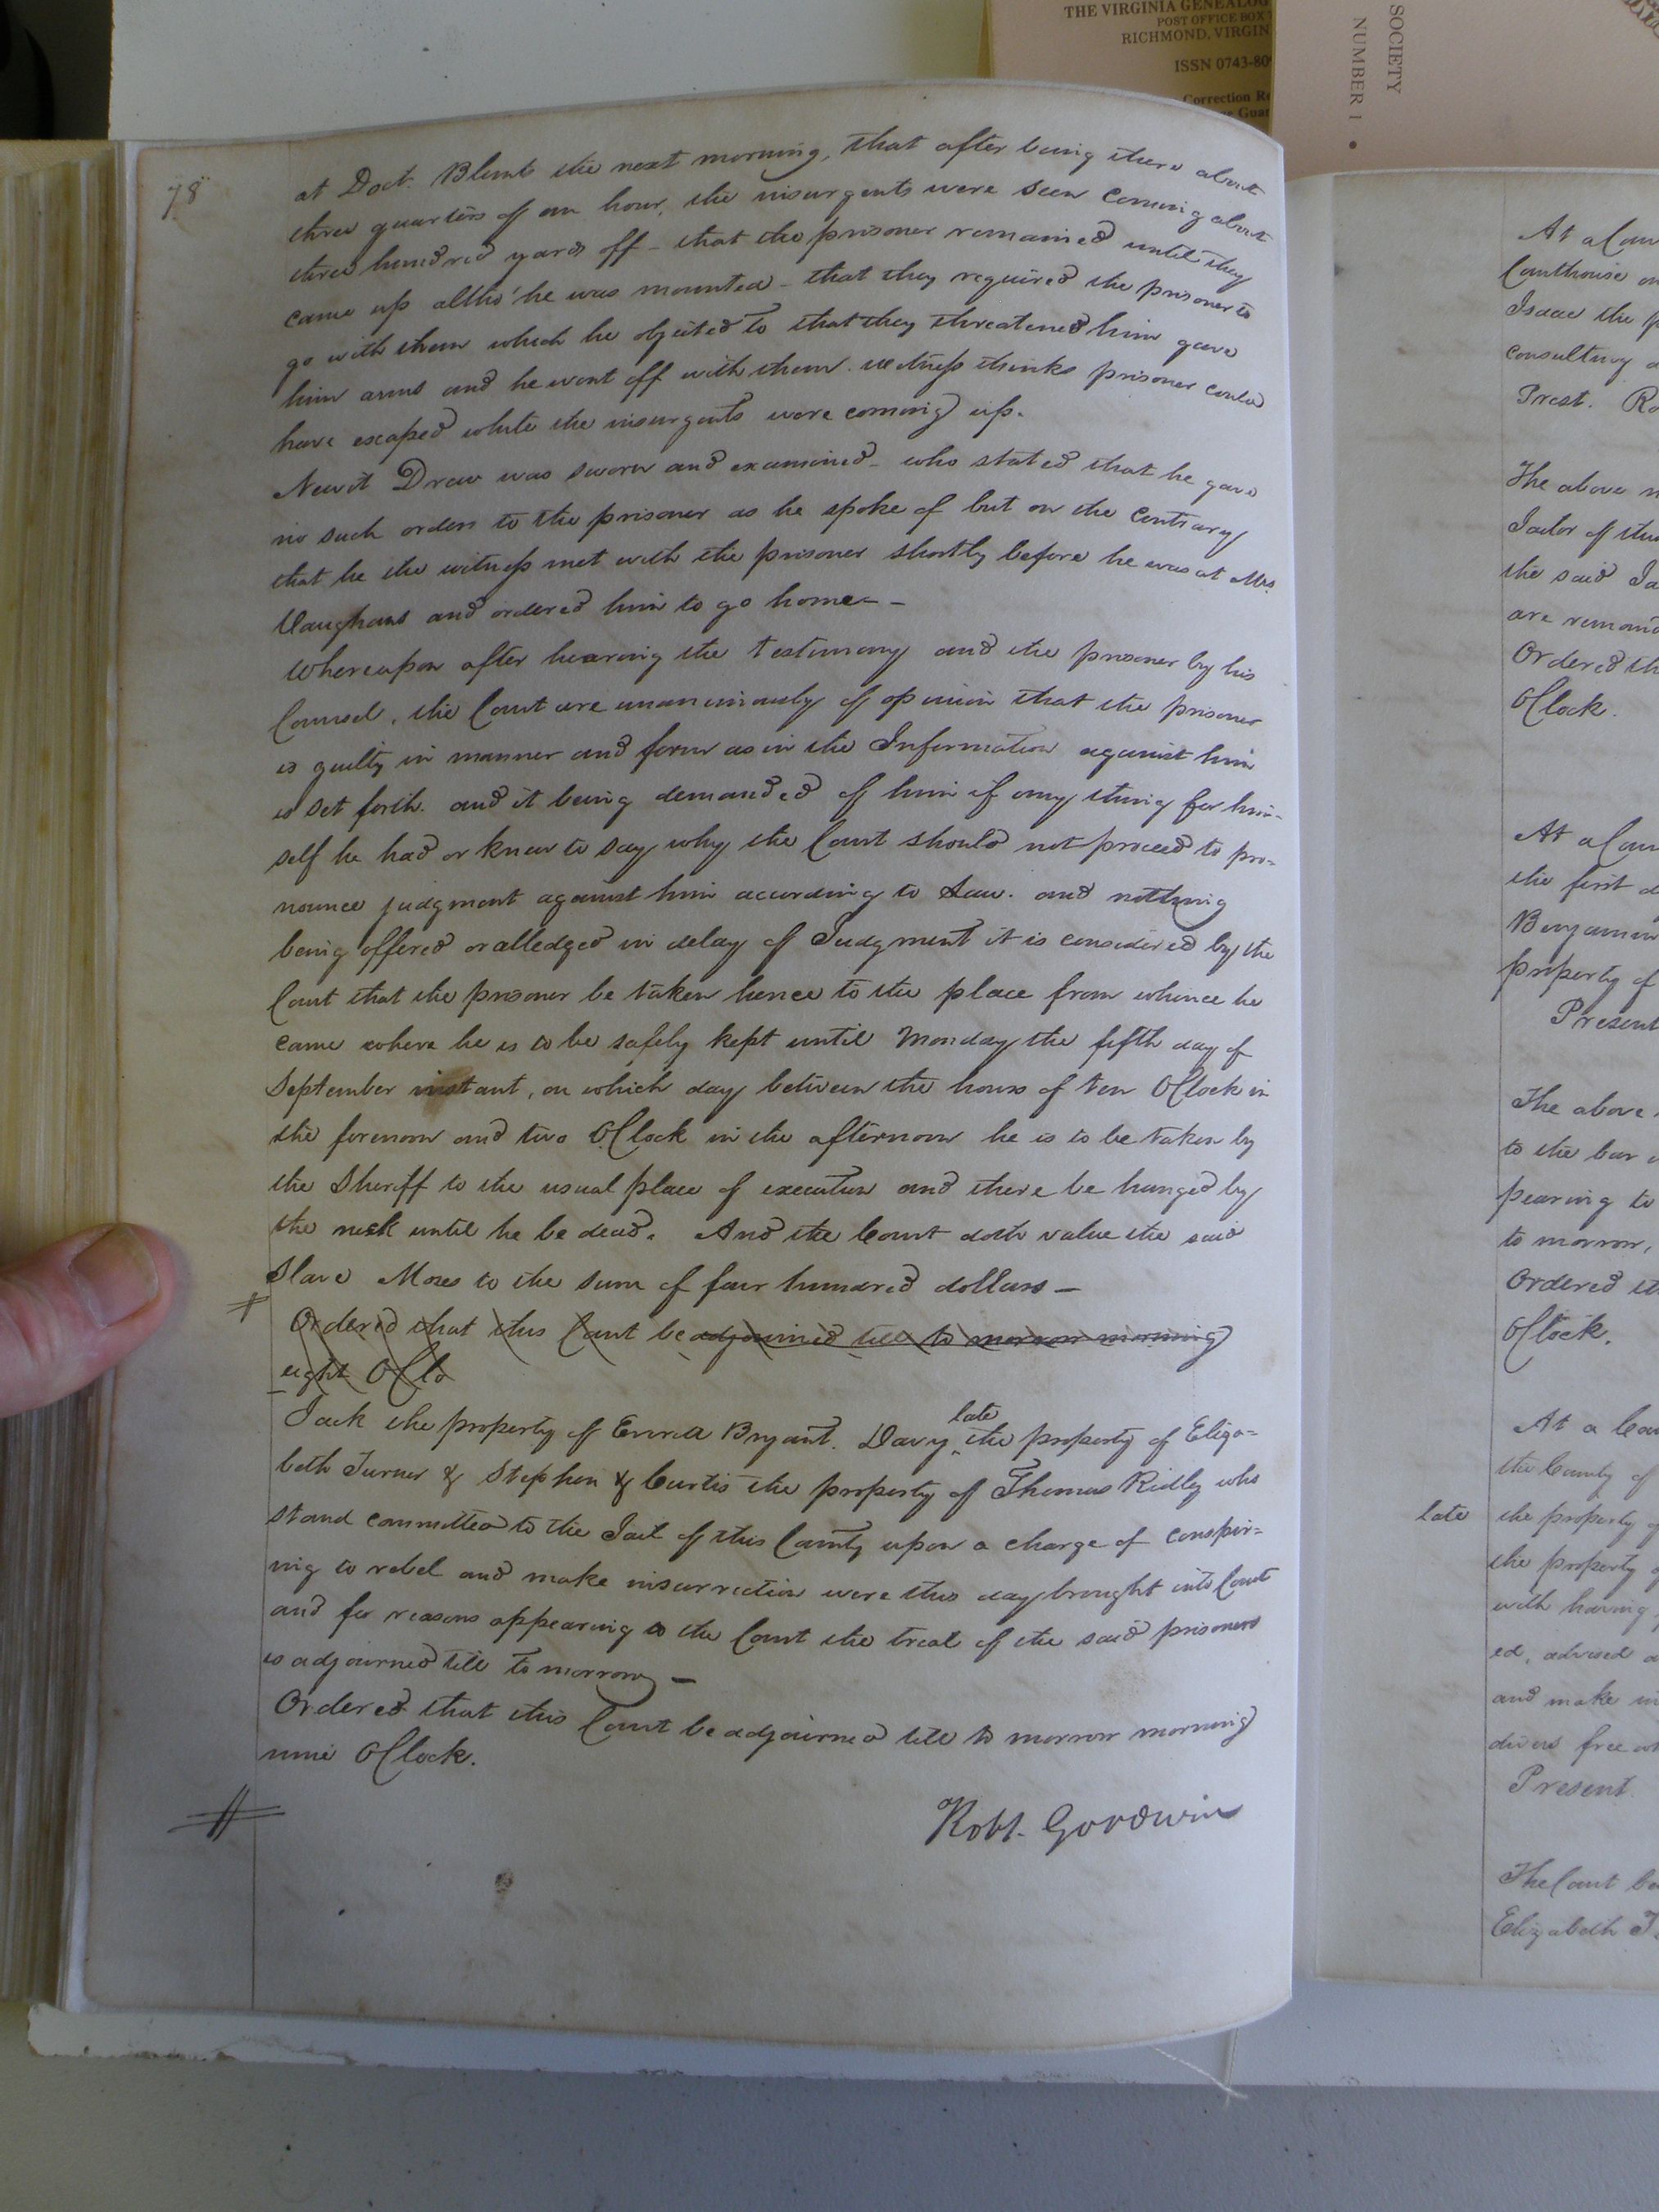 THE VIRGINIA GENEALOG
POST OFFICE BOX
RICHMOND, VIRGIN
ISSN 0743-809
Correction Re
Guar
SOCIETY
NUMBER 1 •
78
at Doct. Blunts the next morning, that after being there about
three quarters of an hour, the insurgents were seen coming about
three hundred yards off - that the prisoner remained until they
came up altho' he was mounted - that they required the prisoner to
go with them which he objected to that they threatened him gave
him arms and he went off with them. witness thinks prisoner could
have escaped while the insurgents were coming up.
Newit Drew was sworn and examined - who stated that he gave
no such orders to the prisoner as he spoke of but on the contrary
that he the witness met with the prisoner shortly before he was at Mrs.
Vaughans and ordered him to go home - -
Whereupon after hearing the testimony and the prisoner by his
Counsel, the Court are unanimously of opinion that the prisoner
is guilty in manner and form as in the Information against him
is set forth. and it being demanded of him if any thing for him-
self he had or knew to say why the Court should not proceed to pro=
nounce judgment against him according to Law. and nothing
being offered or alledged in delay of Judgment it is considered by the
Court that the prisoner be taken hence to the place from whence he
came where he is to be safely kept until Monday the fifth day of
September instant, on which day between the hours of ten OClock in
the forenoon and two OClock in the afternoon he is to be taken by
the Sheriff to the usual place of execution and there be hanged by
the neck until he be dead. And the Court doth value the said
Slave Moses to the sum of four hundred dollars -
Ordered that this Court be adjourned till to morrow morning
eight OClo
Jack the property of Everett Bryant. Davy late the property of Eliza=
beth Turner & Stephen & Curtis the property of Thomas Ridley who
stand committed to the Jail of this County upon a charge of conspir=
ing to rebel and make insurrection were this day brought into Court
and for reasons appearing to the Court the trial of the said prisoners
is adjourned till to morrow -
Ordered that this Court be adjourned till to morrow morning
nine OClock.
Robt. Goodwin
At a Cour
Courthouse on
Isaac the p
consulting a
Prest. Ro
The above n
Jailor of this
the said Ja
are remand
Ordered th
OClock.
At a Cour
the first d
Benjamin
property of
Present
The above
to the bar
pearing to
to morrow,
Ordered th
OClock.
At a Cou
the County of
late the property of
the property of
with having
ed, advised a
and make in
divers free wh
Present
The Court be
Elizabeth T